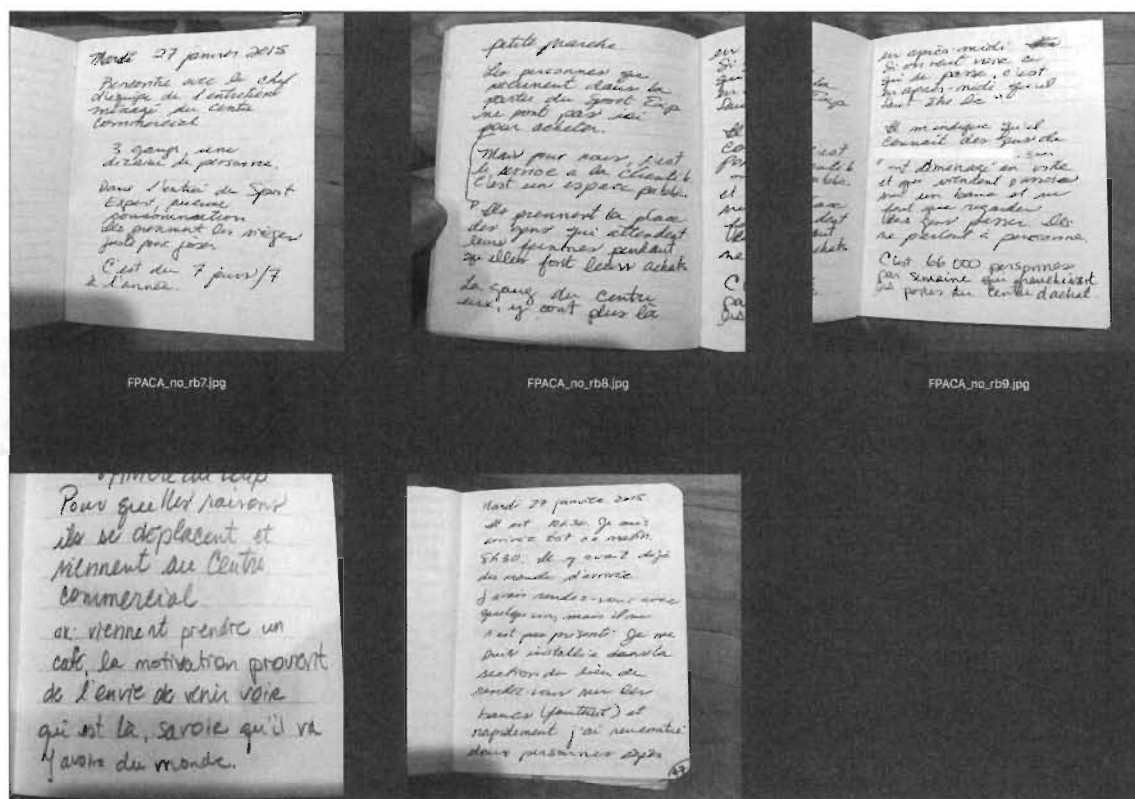 Mardi 27 janvier 2015
Rencontre avec le chef
d'équipe de l'entretien
ménager du centre
commercial
3 gangs, une
dizaine de personne.
Dans l'entrée du Sport
Expert, aucune
consommation
Ils prennent les sièges
juste pour jaser
C'est du 7 jours/7
à l'année.
petite marche
Les personnes qui
dans la
portes du Sport Exp
ne sont pas ici
pour acheter.
Mais pour nous, c'est
le service à la clientèle
C'est un espace public.
Ils prennent la place
des gens qui attendent
leurs femmes pendant
qu'elles font leurs achats
La gang du centre
eux, y sont plus là
en après-midi
Si on veut voir ce
qui se passe, c'est
en après-midi qu'il
faut être là"
Il m'indique qu'il
connait des gens du
aménagé en ville
et qui viennent s'asseoir
sur un banc et ne
font que regarder
les gens passer. Ils
ne parlent à personne.
C'est 66 000 personnes
par semaine qui franchissent
les portes du centre d'achat
FPACA_no_rb7.jpg
FPACA_no_rb8.jpg
FPACA_no_rb9.jpg
Pour quelles raisons
ils se déplacent et
viennent au Centre
commercial
ex: viennent prendre un
café, la motivation provient
de l'envie de venir voir
qui est là, savoir qu'il va
y avoir du monde.
Mardi 27 janvier 2015
Il est 10h30. Je suis
arrivée tôt ce matin,
8h30. Il y avait déjà
du monde d'arrivée
J'avais rendez-vous avec
quelqu'un, mais il ne
s'est pas présenté. Je me
suis installée dans la
section du lieu de
rendez-vous sur les
bancs (fauteuil) et
rapidement j'ai rencontré
deux personnes âgées